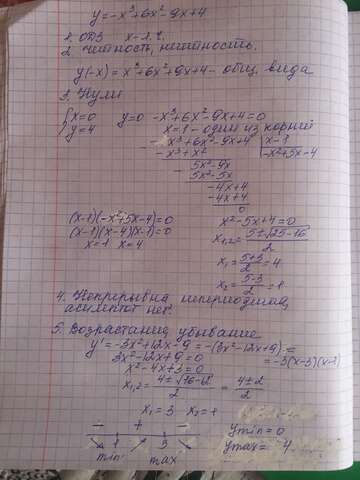 y=-x³+6x²-9x+4
1. ОДЗ x-л.ч.
2. Четность, нечетность.
y(-x)=x³+6x²+9x+4- общ. вида
3. Нули
{x=0 y=4
y=0 -x³+6x²-9x+4=0
x=1 - один из корней
-x³+6x²-9x+4 | x-1
-x³+x² | -x²+5x-4
5x²-9x
5x²-5x
-4x+4
-4x+4
0
(x-1)(-x²+5x-4)=0
(x-1)(x-4)(x-1)=0
x=1 x=4
x²-5x+4=0
x₁,₂=(5±√25-16)/2
x₁=(5+3)/2=4
x₂=(5-3)/2=1
4. Непрерывна, непериодична,
асимптот нет.
5. Возрастание, убывание
y'=-3x²+12x-9=-(3x²-12x+9)=
=-3(x-3)(x-1)
3x²-12x+9=0
x²-4x+3=0
x₁,₂=(4±√16-12)/2=(4±2)/2
x₁=3 x₂=1
- + -
1 3
min max
ymin=0
ymax=4